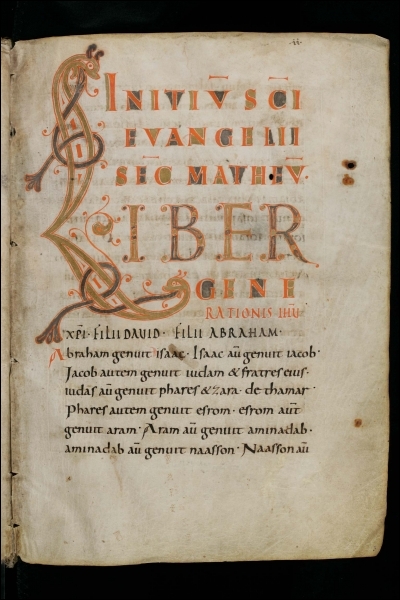 INITIVS SCI
EVANGELII
SEC MATHEV·
LIBER
GINE
RATIONIS IHU
XPI· FILII DAVID · FILII ABRAHAM·
Abraham genuit isaac· Isaac aū genuit iacob·
Jacob autem genuit iudam & fratres eius·
iudas aū genuit phares & zara· de thamar·
Phares autem genuit esrom· esrom aūt
genuit aram· Aram aū genuit aminadab·
aminadab aū genuit naasson· Naasson aū